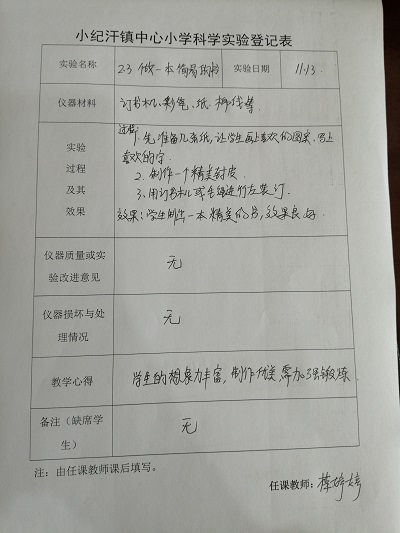 小纪汗镇中心小学科学实验登记表
实验名称 23 做一本简易的书 实验日期 11.13
仪器材料 订书机、彩笔、纸、棉线等
实验过程及其效果
过程:
1、先准备几条纸,让学生画上喜欢的图案、写上
喜欢的字.
2、制作一个精美封皮
3、用订书机或毛线进行左装订
效果:学生制出一本精美的书,效果良好.
仪器质量或实
验改进意见
无
仪器损坏与处
理情况
无
教学心得 学生的想象力丰富,制作优美,需加强锻炼.
备注(缺席学
生)
无
注:由任课教师课后填写。
任课教师: 婷婷